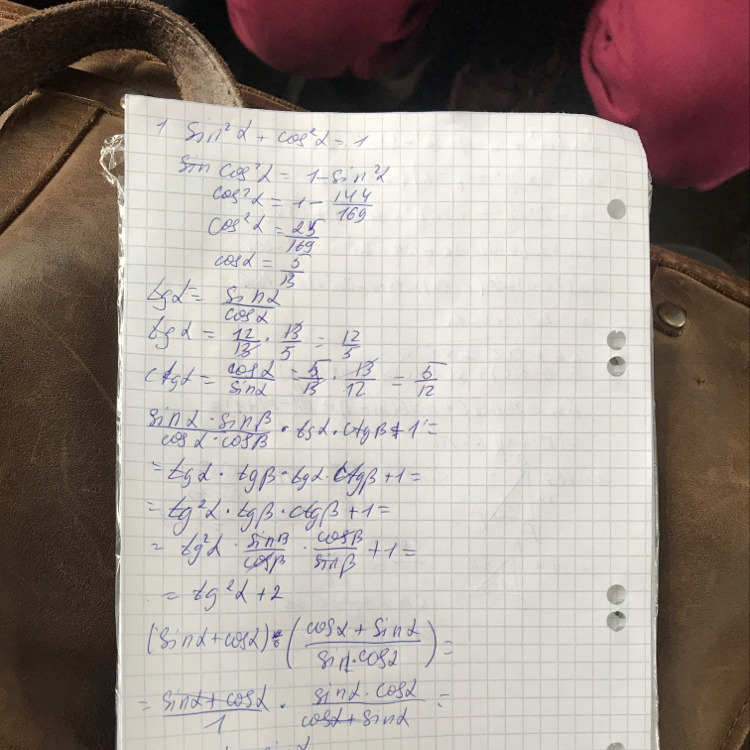 1 sin²α + cos²α = 1
sin cos²α = 1 - sin²α
cos²α = 1 - 144/169
cos²α = 25/169
cosα = 5/13
tgα = sinα/cosα
tgα = 12/13 · 13/5 = 12/5
ctgα = cosα/sinα = 5/13 · 13/12 = 5/12
sinα · sinβ / cosα · cosβ · tgα · ctgβ + 1 =
= tgα · tgβ · tgα · ctgβ + 1 =
= tg²α · tgβ · ctgβ + 1 =
= tg²α · sinβ/cosβ · cosβ/sinβ + 1 =
= tg²α + 2
(sinα + cosα) : (cosα + sinα / sin · cosα) =
= sinα + cosα / 1 · sinα · cosα / cosα + sinα =